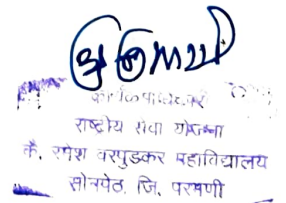 राष्ट्रीय सेवा योजना
कै. रमेश वरपुडकर महाविद्यालय
सोनपेठ, जि. परभणी